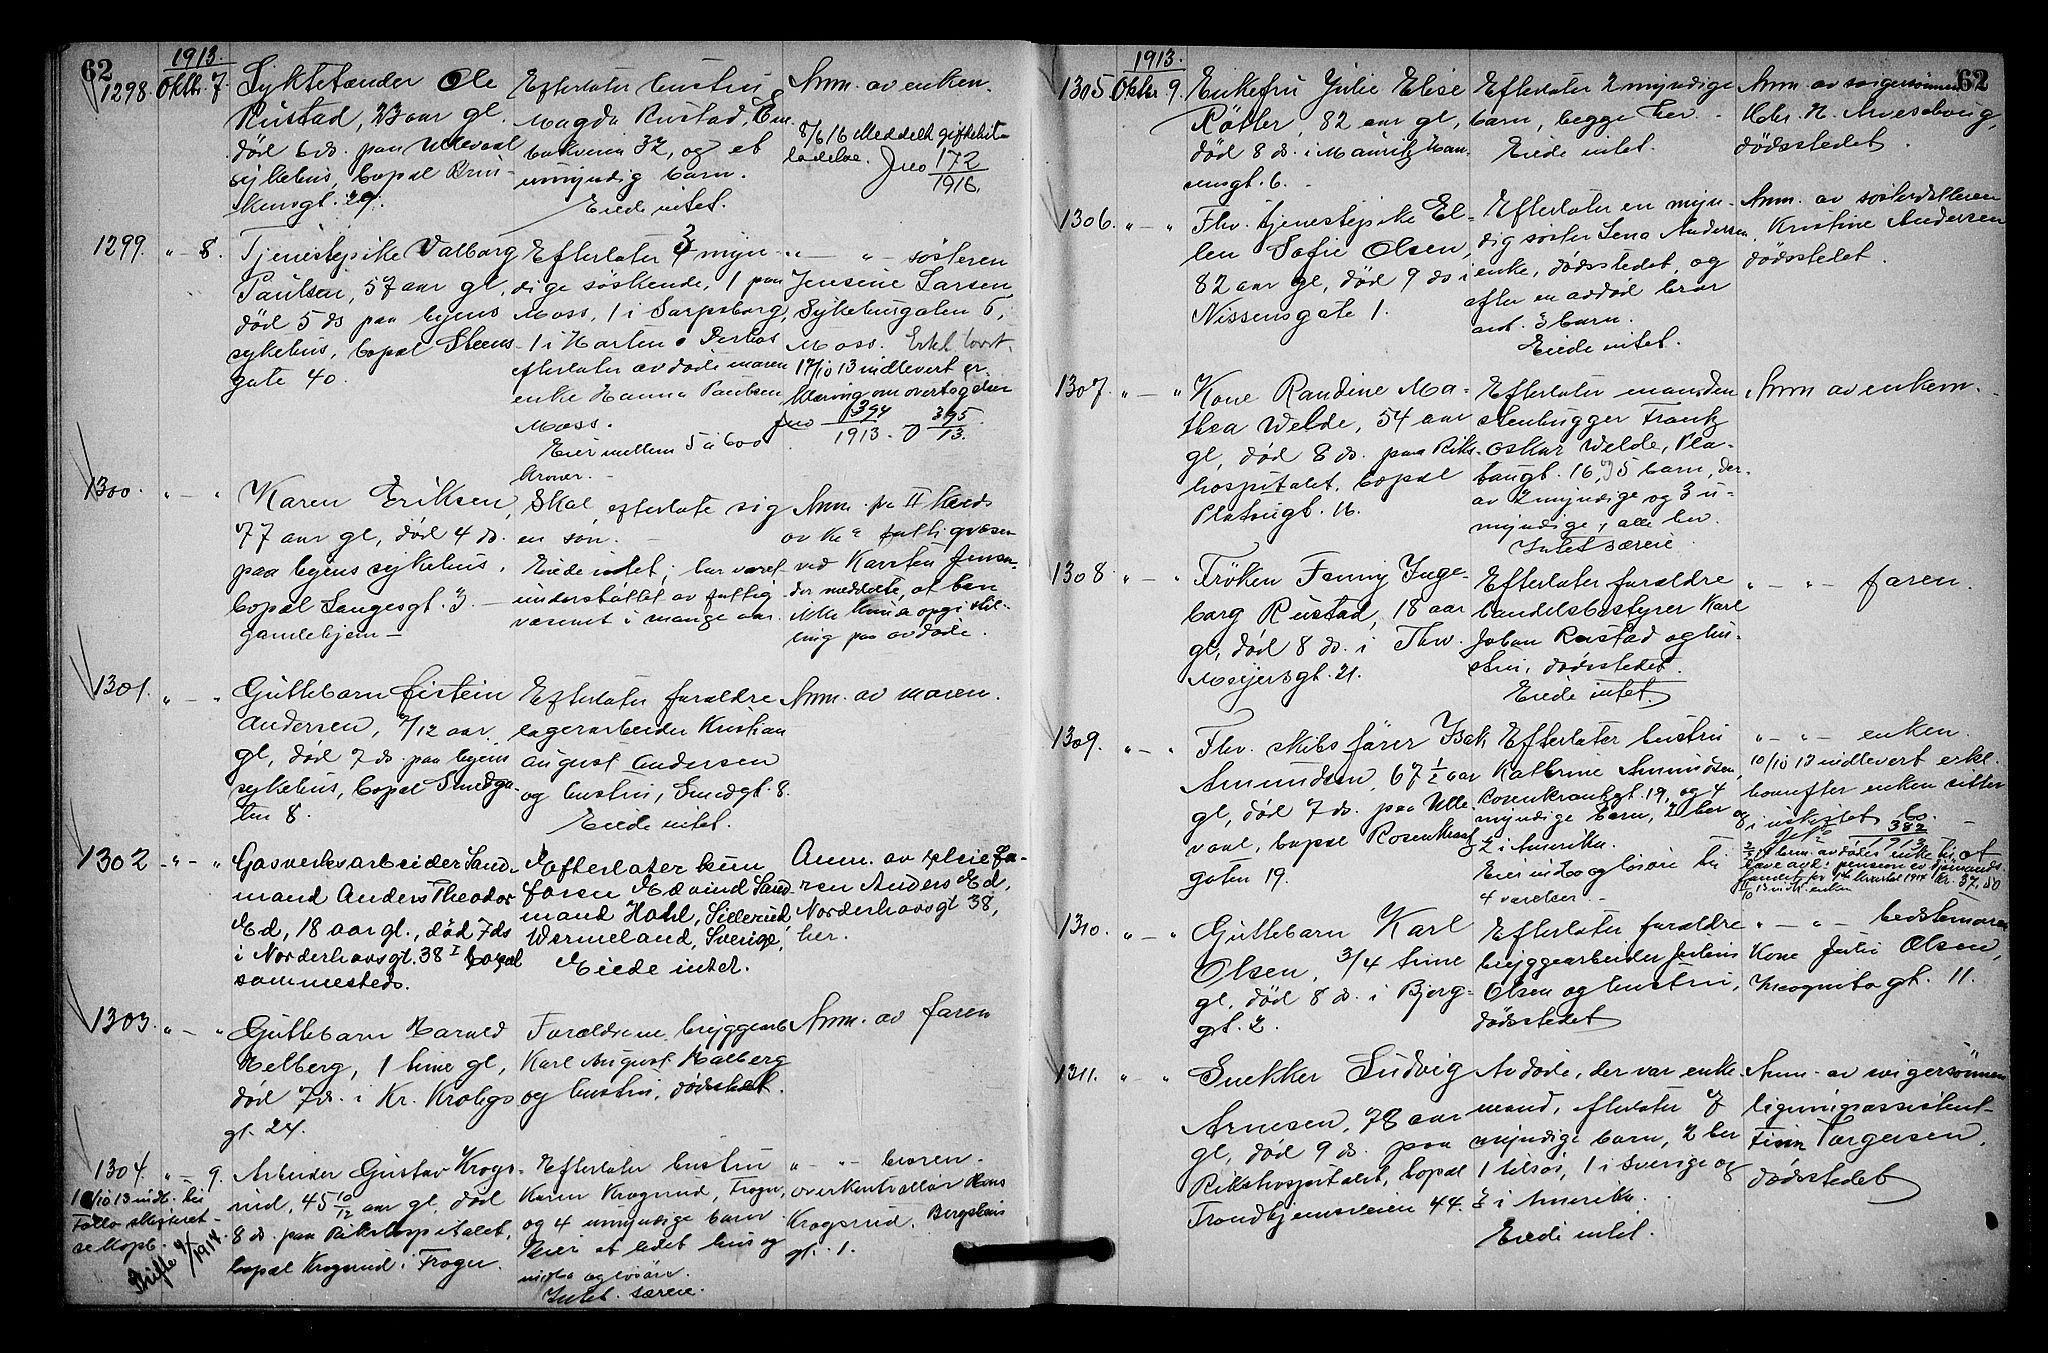 62
1913.
1298 Oktbr. 7. Lyktetænder Ole
Rustad, 23 aar gl.
død 6 ds. paa Ullevaal
sykehus, bopæl Brin-
kensgt. 29.
Efterlater hustru
Magda Rustad,
32, og et
umyndig barn.
Eiede intet.
Anm. av enken.
8/6 16 Meddelt giftetil-
ladelse.
Jno 172
1916.
1299. " - 8. Tjenestepike Valborg
Paulsen, 57 aar gl,
død 5 ds paa byens
sykehus, bopæl Steens
gate 40.
Efterlater 3 myn-
dige søskende, 1 paa
Moss, 1 i Sarpsborg,
1 i
efterlater avdøde moren
enke Hanna Paulsen
Moss.
Eier mellem 5 à 600
kroner.
" - " - søsteren
Jensine Larsen
Sykehusgaten 6,
Moss.
17/10 13 indlevert er-
klæring om overtagelsen
Jno 394
1913. 395
13.
1300. " - " Karen Eriksen,
77 aar gl, død 4 ds.
paa byens sykehus,
bopæl Langesgt. 3.
gamlehjem -
Skal efterlate sig
en søn. -
Eiede intet; har været
understøttet av fattig-
væsenet i mange aar.
Anm. fra II kreds
av Kra fattigvæsen
ved Karsten Jensen
der meddelte, at han
ikke kunde opgi stil-
ling paa avdøde.
1301. " - " Guttebarn Eistein
Andersen, 9/12 aar
gl, død 7 ds. paa byens
sykehus, bopæl Smedga-
ten 8.
Efterlater forældre
lagerarbeider Kristian
August Andersen
og hustru, Smedgt. 8.
Eiede intet.
Anm. av moren.
1302 " - " Gasverksarbeider Sand-
mand Anders Theodor
Ed, 18 aar gl., død 7 ds
i Norderhovsgt. 38 I bopæl
sammesteds.
Efterlater kun
faren Edvind Sand-
mand Hahl, Sillerud,
Wermeland, Sverige,
Eiede intet.
Anm. av pleiefa-
ren Anders Ed,
Norderhovsgt 38,
her.
1303. " - " Guttebarn Harald
Melberg, 1 time gl,
død 7 ds. i Kr. Kroghs
gt. 24.
Forældrene bryggearb.
Karl August Malberg
og hustru, dødsstedet.
Anm. av faren
1304. " - 9. Arbeider Gustav Krogs-
rud, 45 10/12 aar gl, død
8 ds. paa Rikshospitalet,
bopæl Krogsrud i Frogn.
10/10 13 indb. til
Follo skifteret
se Kopb.
Skifte 9/1914
Efterlater hustru
Karen Krogsrud, Frogn,
og 4 umyndige barn
Eier et litet hus og
indbo og løsøre.
Intet særeie.
" - " - broren
overkontrollør Hans
Krogsrud, Bergsliens
gt. 1.
62
1913.
1305 Oktbr. 9. Enkefru Julie Elise
Røtter, 82 aar gl,
død 8 ds. i Mauritz Han-
sensgt. 6. -
Efterlater 2 myndige
barn, begge her. -
Eiede intet.
Anm. av svigersønnen
Hdr. N. Arveschoug,
dødsstedet.
1306. " - " Fhv. tjenestepike El-
len Sofie Olsen,
82 aar gl, død 9 ds i
Nissensgate 1.
Efterlater en myn-
dig søster Lena Andersen,
enke, dødsstedet, og
efter en avdød bror
3 barn.
Eiede intet.
Anm. av søsterdatteren
Kristine Andersen
dødsstedet.
1307. " - " Kone Randine Ma-
thea Welde, 54 aar
gl, død 8 ds. paa Riks-
hospitalet, bopæl
Platougt. 16.
Efterlater manden
stenhugger Frantz
Oskar Welde, Pla-
tougt. 16, og 5 barn, der-
av 2 myndige og 3 u-
myndige, alle her.
Intet særeie.
Anm av enkem.
1308 " - " Frøken Fanny Inge-
borg Rustad, 18 aar
gl, død 8 ds. i Thv.
Meyersgt. 21.
Efterlater forældre
handelsbestyrer Karl
Johan Rustad og hu-
stru, dødsstedet.
Eiede intet.
" - " - faren.
1309. " - " Fhv. skibsfører Isak
Amundsen, 67 1/2 aar
gl, død 7 ds. paa Ulle-
vaal, bopæl Rosenkrantz
gaten 19.
Efterlater hustru
Kathrine Amundsen,
Rosenkrantzgt. 19, og 4
myndige barn, 2 her og
2 i Amerika.
Eier indbo og løsøre til
4 værelser. -
" - " - enken.
10/10 13 indlevert erkl.
hvorefter enken sitter
i uskiftet bo.
Jno 382
1913
1310. " - " Guttebarn Karl
Olsen, 3/4 time
gl, død 8 ds. i Bjerg-
gt. 2.
Efterlater forældre
bryggearbeider Jentius
Olsen og hustru,
dødsstedet
" - " - bedstemoren
Kone Julie Olsen,
Incognito gt. 11.
1311. " - " Snekker Ludvig
Arnesen, 78 aar
gl, død 9 ds. paa
Rikshospitalet, bopæl
Trondhjemsveien 44.
Avdøde, der var enke-
mand, efterlater 7
myndige barn, 2 her
1 tilsjøs, 1 i Sverige og
3 i Amerika.
Eiede intet.
Anm. av svigersønnen
ligningsassistent
Finn Torgersen,
dødsstedet